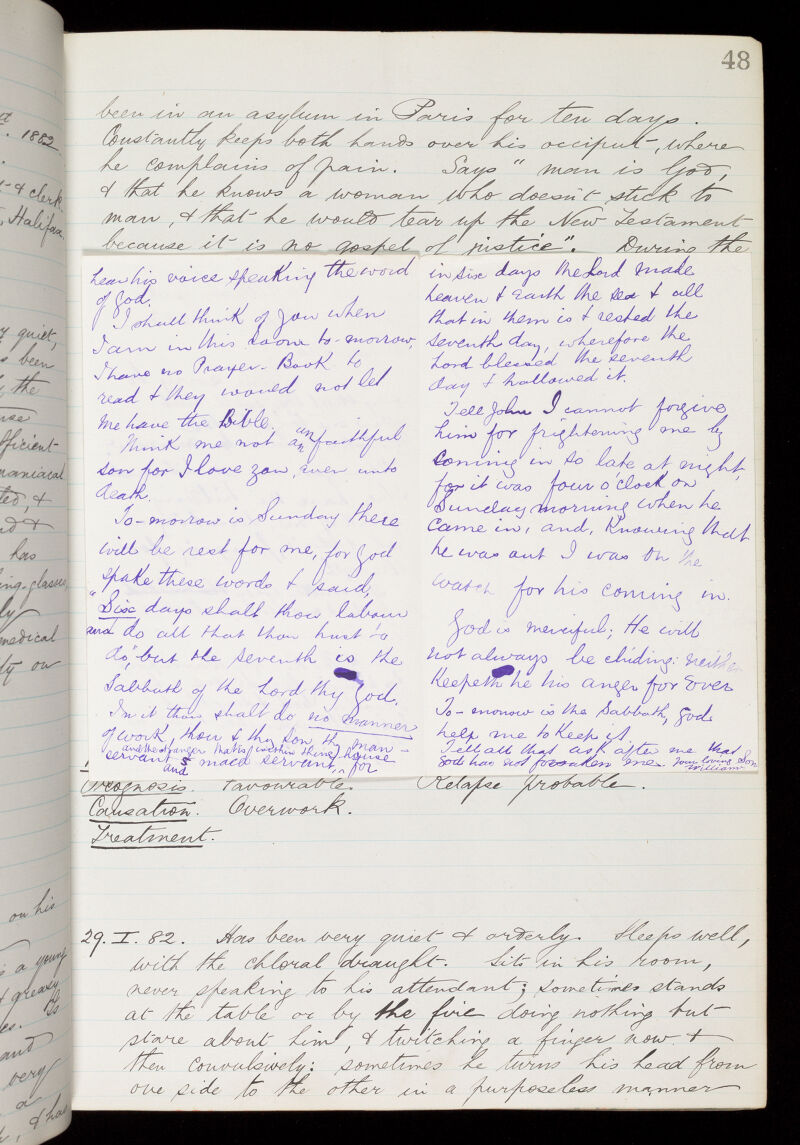 48
been in an asylum in Paris for ten days.
Constantly keeps both hands over his occiput, where
he complains of pain. Says "man is God,
& that he knows a woman who doesn't stick to
man, & that he would tear up the New Testament
because it is no gospel of justice". During the
hear his voice speaking the word
of God.
I shall think of you when
I am in this room to-morrow,
I have no Prayer-Book to
read & they would not let
me have the Bible.
Think me not an unfaithful
son for I love you, even unto
death.
To-morrow is Sunday there
will be rest for me, for God
spake these words & said,
"Six days shalt thou labour
and do all that thou hast to
do", but the seventh is the
Sabbath of the Lord thy God.
In it thou shalt do no manner
of work, thou & thy son, thy man-
servant & maid servant, for
and the stranger that is within thine house
and
in six days the Lord made
heaven & Earth the sea & all
that in them is & rested the
seventh day, wherefore the
Lord blessed the seventh
day & hallowed it.
Tell John I cannot forgive
him for frightening me by
coming in so late at night,
for it was four o'clock on
Sunday morning when he
came in, and, Knowing that
he was out I was on the
watch for his coming in.
God is merciful; He will
not always be chiding: neither
Keepeth he his anger for Ever
To-morrow is the Sabbath, God
help me to Keep it.
Tell all that ask after me that
God has not forsaken me. your loving Son
William
Prognosis. Favourable. Relapse probable.
Causation. Overwork.
Treatment.
29. I. 82. Has been very quiet & orderly. Sleeps well,
with the chloral draught. Sits in his room,
never speaking to his attendant; sometimes stands
at the table or by the fire doing nothing but
stare about him, & twitching a finger now &
then convulsively: sometimes he turns his head from
one side to the other in a purposeless manner
1882
& clerk
Halifax
quiet,
been
the
maniacal
has
medical
on his
a young
& greasy
and
very
a
& has